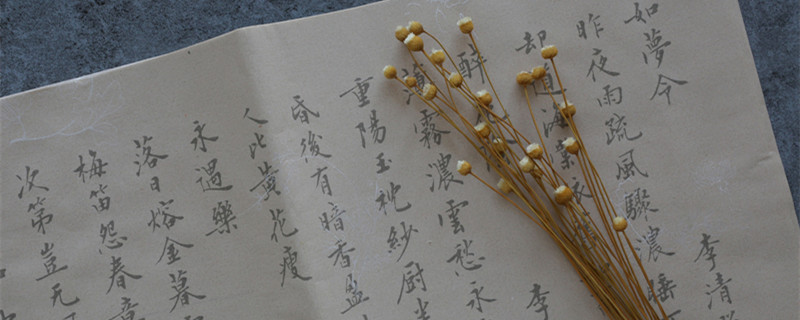 如夢令 李清
昨夜雨疏風驟濃睡
却道海棠依
醉 李
薄霧濃雲愁永
重陽玉枕紗厨半
昏後有暗香盈
人比黃花瘦
永遇樂
落日熔金暮
梅笛怨春意
次第豈无